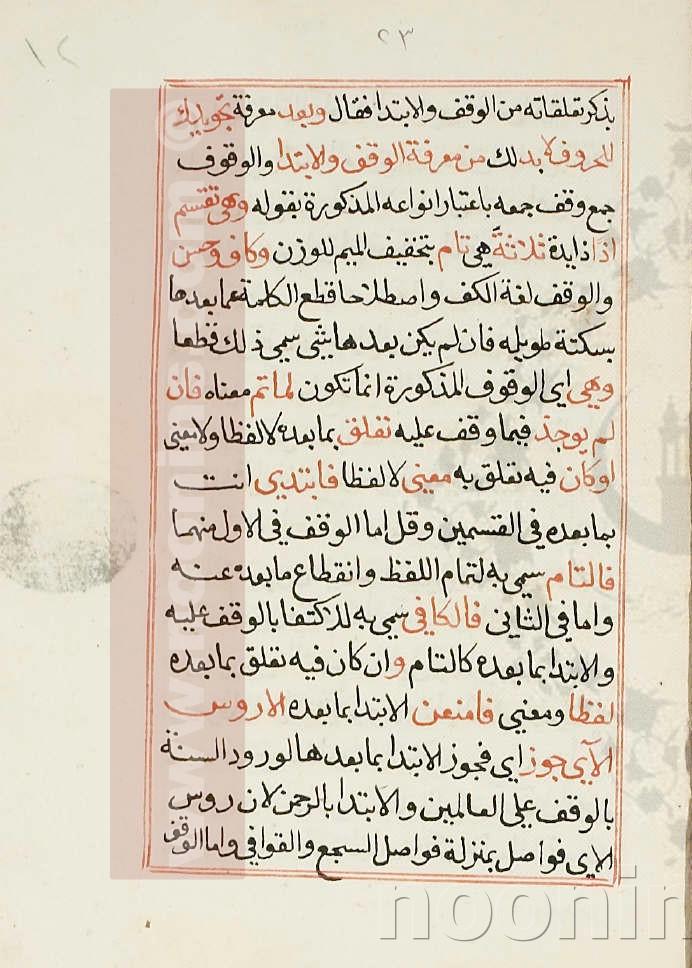 ٢٣
١٢
بذكر تعلقاته من الوقف والابتدا فقال وبعد معرفة تجويدك
للحروف لا بد لك من معرفة الوقف والابتدا والوقوف
جمع وقف جمعه باعتبار انواعه المذكورة بقوله وهي تقسم
اذا زايدة ثلاثة هي تام بتخفيف الميم للوزن وكاف وحسن
والوقف لغة الكف واصطلاحا قطع الكلمة عما بعدها
بسكتة طويله فان لم يكن بعدها شي سمي ذلك قطعا
وهي اي الوقوف المذكورة انما تكون لما تم معناه فان
لم يوجد فيما وقف عليه تعلق بما بعده لا لفظا ولا معنى
او كان فيه تعلق به معنى لا لفظا فابتدي انت
بما بعده في القسمين وقل اما الوقف في الاول منهما
فالتام سمي به لتمام اللفظ وانقطاع ما بعده عنه
واما في الثاني فالكافي سمي به للاكتفا بالوقف عليه
والابتدا بما بعده كالتام وان كان فيه تعلق بما بعده
لفظا ومعنى فامنعن الابتدا بما بعده الا روس
الآي جوز اي فجوز الابتدا بما بعدها لورود السنة
بالوقف على العالمين والابتدا بالرحمن لان روس
الاي فواصل بمنزلة فواصل السجع والقوافي واما الوقف
noonin